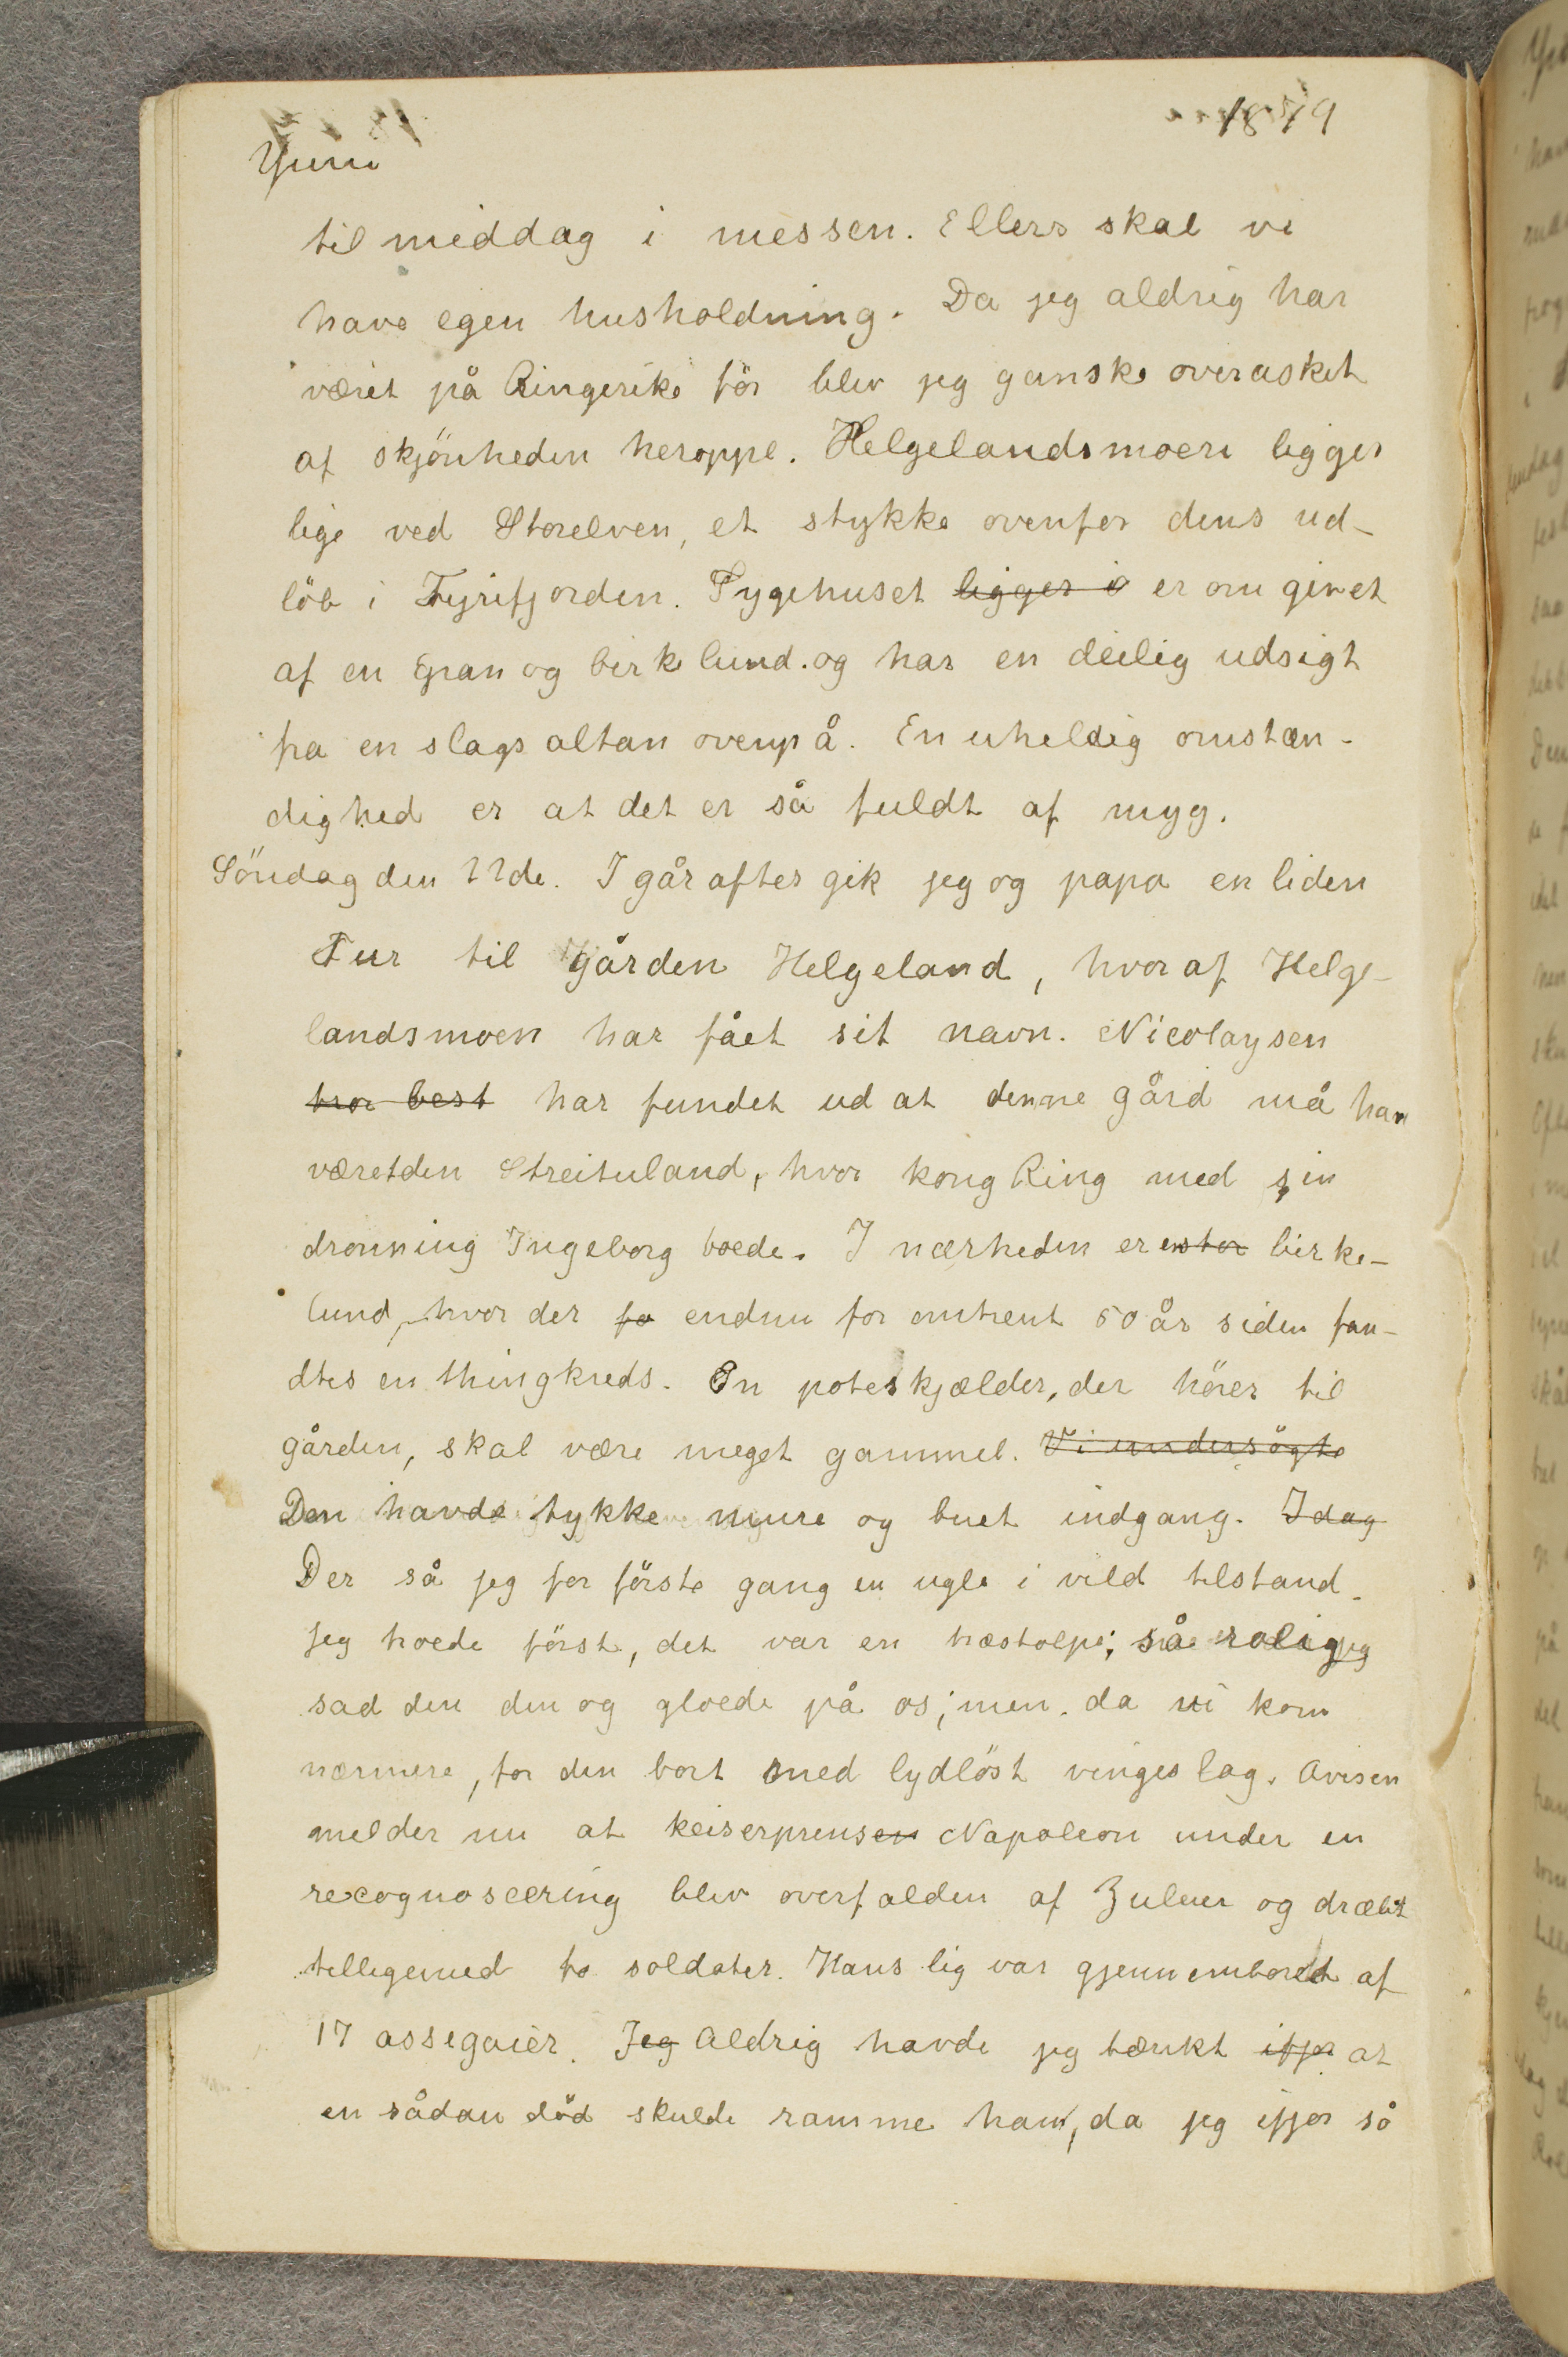 Juni
1879
til middag i messen. Ellers skal vi
have egen husholdning. Da jeg aldrig har
været på Ringerike för blev jeg ganske overasket
af skjönheden heroppe. Helgelandsmoen ligger
lige ved Storelven, et stykke ovenfor dens ud-
löb i Tyrifjorden. Sygehuset ligger i er omgivet
af en gran og birk lund. og har en deilig udsigt
fra en slags altan ovenpå. En uheldig omstæn-
dighed er at det er så fuldt af myg.
Söndag den 22de. I går aftes gik jeg og papa en liden
Tur til gården Helgeland, hvoraf Helge-
landsmoen har fået sit navn. Nicolaysen
tror best har fundet ud at denne gård må han
været den Streituland, hvor kong Ring med sin
dronning Ingeborg boede. I nærheden er en stor birke-
lund, hvor der fa endnu for omtrent 50 år siden fan-
dtes en thingkreds. En poteskjælder, der hörer til
gården, skal være meget gammel. Vi undersögte
Den havde tykke mure og buet indgang. Idag
Der så jeg for förste gang en ugle i vild tilstand.
Jeg troede först, det var en træstolpe; så rolig
sad den den og gloede på os; men. da vi kom
nærmere, for den bort med lydlöst vingeslag. Avisen
melder nu at keiserprinsen Napoleon under en
recognoscering blev overfalden af Zuluer og dræbt
tilligemed to soldater. Hans lig var gjennemboret af
17 assegaier. Jeg Aldrig havde jeg tænkt ifjor at
en sådan död skulde ramme ham, da jeg ifjor så